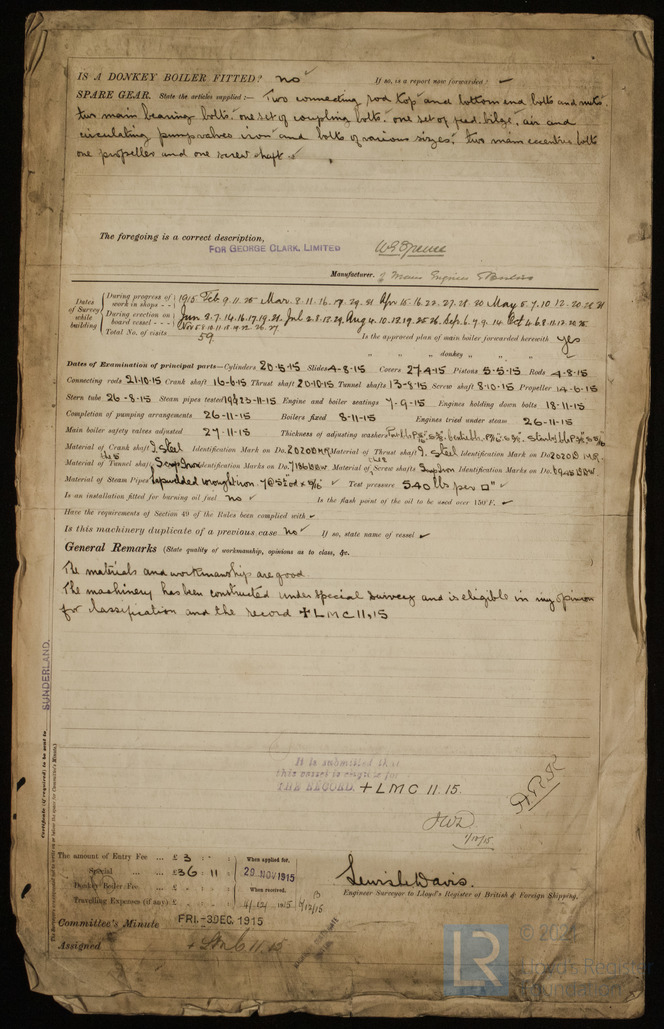 IS A DONKEY BOILER FITTED? no If so, is a report now forwarded?
SPARE GEAR. State the articles supplied:— Two connecting rod top and bottom end bolts and nuts.
two main bearing bolts. one set of coupling bolts. one set of feed. bilge. air and
circulating pump valves iron and bolts of various sizes. two main eccentric bolts
one propeller and one screw shaft
The foregoing is a correct description,
FOR GEORGE CLARK, LIMITED
Manufacturer.
Dates of Survey while building
During progress of work in shops - - 1915. Feb. 9. 11. 25 Mar. 3. 11. 16. 19. 29. 31 Apr 15. 16. 22. 27. 28. 30 May 5. 7. 10. 12. 20. 28. 31
During erection on board vessel - - - Jun 3. 7. 14. 16. 17. 19. 21. Jul 2. 8. 12. 29. Aug 4. 10. 12. 19. 25. 26. Sep. 6. 7. 9. 14. Oct 4. 6. 8. 11. 12. 20. 25
Nov 5. 8. 10. 11. 18. 19. 22. 26. 27.
Total No. of visits 59. Is the approved plan of main boiler forwarded herewith yes
" " " donkey " "
Dates of Examination of principal parts—Cylinders 20-5-15 Slides 4-8-15 Covers 27-4-15 Pistons 5-5-15 Rods 4-8-15
Connecting rods 21-10-15 Crank shaft 16-6-15 Thrust shaft 20-10-15 Tunnel shafts 13-8-15 Screw shaft 8-10-15 Propeller 14-6-15
Stern tube 26-8-15 Steam pipes tested 19 & 23-11-15 Engine and boiler seatings 7-9-15 Engines holding down bolts 18-11-15
Completion of pumping arrangements 26-11-15 Boilers fixed 8-11-15 Engines tried under steam 26-11-15
Main boiler safety valves adjusted 27-11-15 Thickness of adjusting washers
Material of Crank shaft I. Steel Identification Mark on Do. 2020B MR Material of Thrust shaft I. Steel Identification Mark on Do. 2020B MR
Material of Tunnel shafts Scrap Iron Identification Marks on Do. Material of Screw shafts Scrap Iron Identification Marks on Do.
Material of Steam Pipes lapwelded wrought iron Test pressure 540 lbs per □"
Is an installation fitted for burning oil fuel no Is the flash point of the oil to be used over 150°F.
Have the requirements of Section 49 of the Rules been complied with
Is this machinery duplicate of a previous case no If so, state name of vessel
General Remarks (State quality of workmanship, opinions as to class, &c.
The materials and workmanship are good.
The machinery has been constructed under special survey and is eligible in my opinion
for classification and the record + LMC 11,15
SUNDERLAND.
Certificate (if required) to be sent to
It is submitted that
this vessel is eligible for
THE RECORD. + LMC 11. 15.
1/12/15
The amount of Entry Fee ... £ 3
Special ... £ 36 : 11
Donkey Boiler Fee ... £
Travelling Expenses (if any) £
When applied for,
29. NOV 1915
When received,
4/12 1915
Lewis Davis.
Engineer Surveyor to Lloyd's Register of British & Foreign Shipping.
Committee's Minute FRI. -3 DEC. 1915
Assigned + LMC 11.15
LR
Lloyd's Register
Foundation